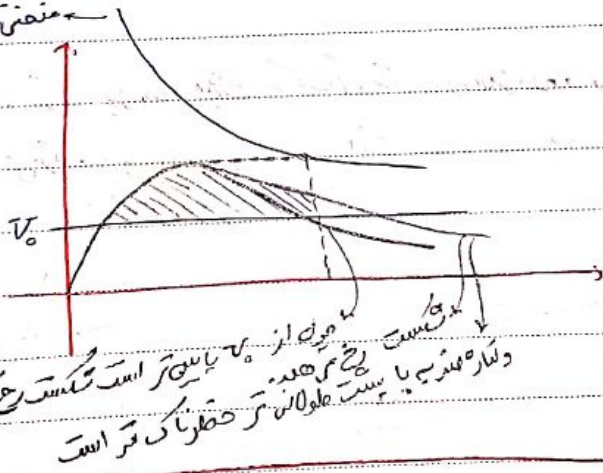 منحنی
V₀
چون از V₀ پایین‌تر است شکست رخ
شکست رخ می‌دهد
ولتاژ ضربه با پشت طولانی‌تر خطرناک‌تر است